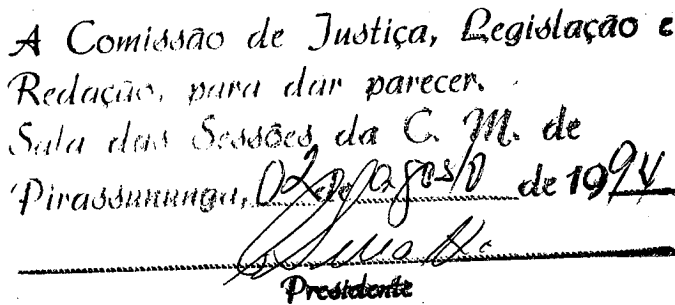 A Comissão de Justiça, Legislação e
Redação, para dar parecer.
Sala das Sessões da C. M. de
Pirassununga, 02 de agosto de 1994
Presidente